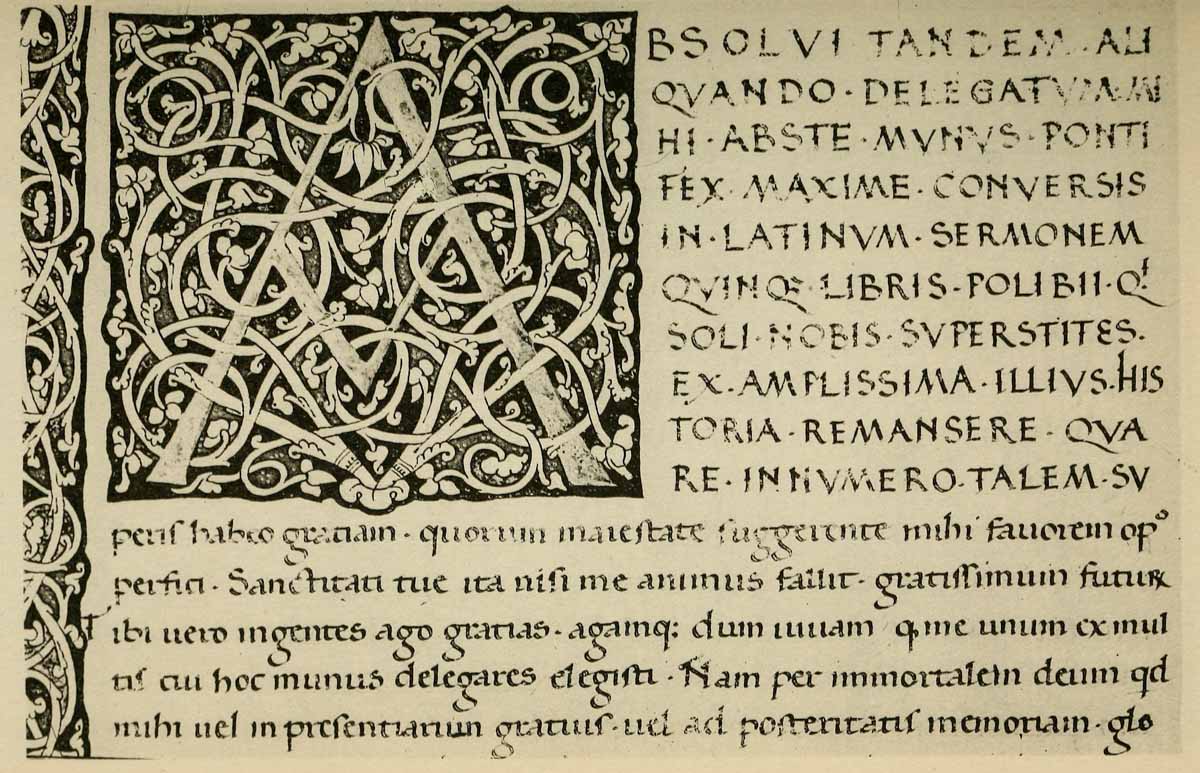 ABSOLVI TANDEM · ALI
QVANDO · DELEGATVM · MI
HI · ABSTE · MVNVS · PONTI
FEX · MAXIME · CONVERSIS
IN · LATINVM · SERMONEM
QVINQ; · LIBRIS · POLIBII · Qͥ
SOLI · NOBIS · SVPERSTITES ·
EX · AMPLISSIMA · ILLIVS · HIS
TORIA · REMANSERE · QVA
RE · INNVMERO · TALEM · SV
peris habeo gratiam · quorum maiestate suggerente mihi fauorem opᵒ
perfici · Sanctitati tue ita nisi me animus fallit · gratissimum futuꝝ
ibi uero ingentes ago gratias · agamq; dum uiuam ꝙ me unum ex mul
tis cui hoc munus delegares elegisti · Nam per immortalem deum qd
mihi uel in presentiarum gratius · uel ad posteritatis memoriam · glo